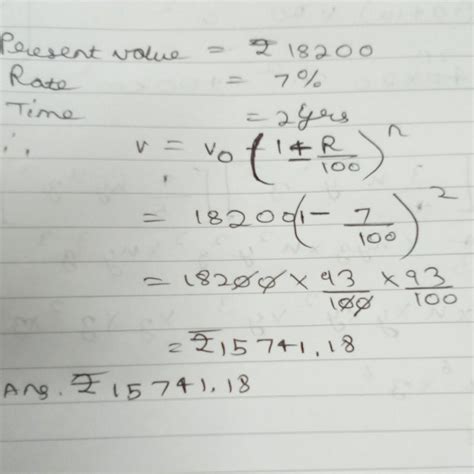 Present value = ₹ 18200
Rate = 7%
Time = 2yrs
∴ v = v₀ (1 ± R/100)ⁿ
= 18200(1 - 7/100)²
= 18200 × 93/100 × 93/100
= ₹15741.18
Ans. ₹15741.18